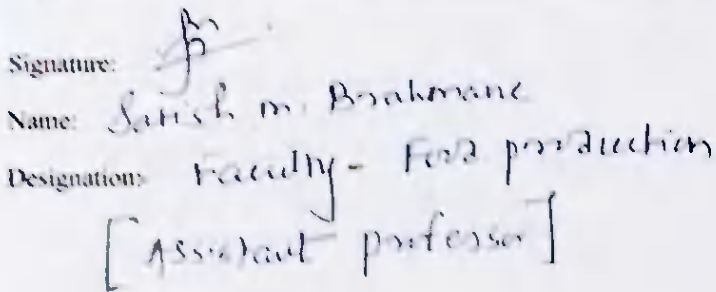 Signature:
Name: Satish m. Brahmane
Designation: Faculty - Food production
[Assistant professor]